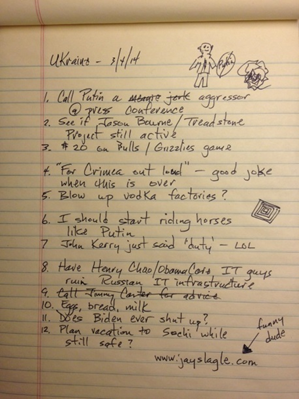 Ukraine - 3/4/14
Putin
1. Call Putin a meanie jerk aggressor
@ press conference
2. See if Jason Bourne / Treadstone
Project still active
3. $20 on Bulls / Grizzlies game
4. "For Crimea out loud" - good joke
when this is over
5. Blow up vodka factories?
6. I should start riding horses
like Putin
7 John Kerry just said 'duty' - LOL
8. Have Henry Chao/ObamaCare IT guys
ruin Russian IT infrastructure
9. Call Jimmy Carter for advice
10. Eggs, bread, milk
11. Does Biden ever shut up?
12. Plan vacation to Sochi while
still safe?
funny
dude
www.jayslagle.com